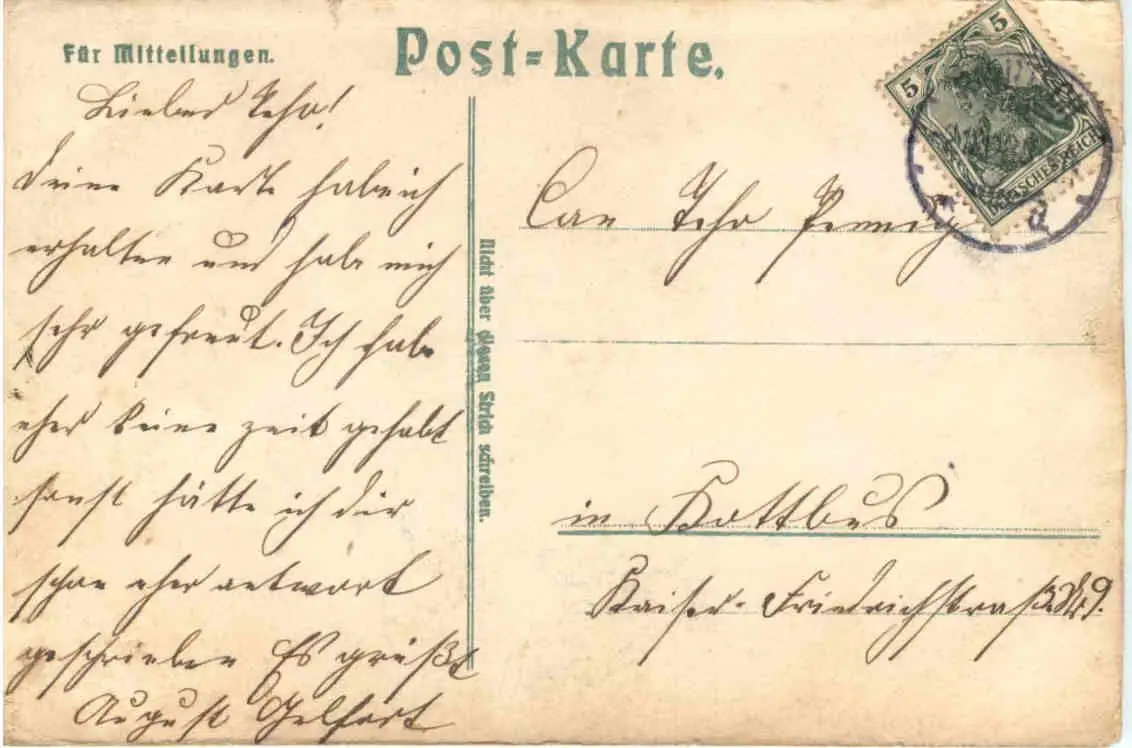 Post-Karte.
Für Mitteilungen.
5
5
DEUTSCHES REICH
Lieber Jeho!
Deine Karte habe ich
erhalten und habe mich
sehr gefreut. Ich habe
eher keine zeit gehabt
sonst hätte ich dir
schon eher antwort
geschrieben Es grüßt
August
Nicht über diesen Strich schreiben.
Jeho
in Kottbus
Kaiser-Friedrichstraße 9.